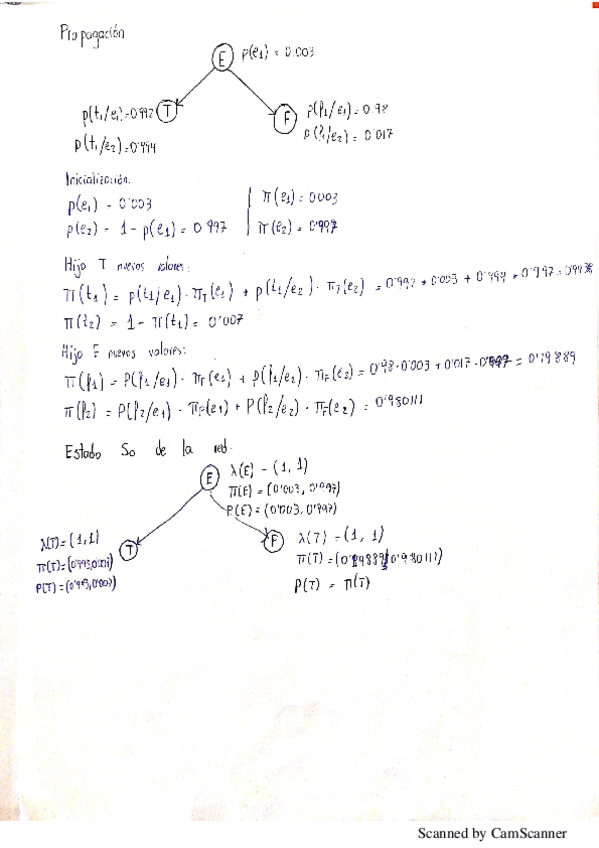 Propagación
E p(e1) = 0.003
p(t1/e1)=0'992 T
p(t1/e2)=0'994
p(f1/e1)=0.98
F p(f1/e2) = 0'017
Inicialización.
p(e1) - 0'003
p(e2) - 1 - p(e1) = 0'997
π(e1) = 0003
π(e2) = 0'997
Hijo T nuevos valores:
π(t1) = p(t1/e1) · πT(e1) + p(t1/e2) · πT(e2) =
π(t2) = 1 - π(t1) = 0'007
Hijo F nuevos valores:
π(f1) = P(f1/e1) · πF(e1) + P(f1/e2) · πF(e2) = 0'98 · 0'003 + 0'017 · = 0'19889
π(f2) = P(f2/e1) · πF(e1) + P(f2/e2) · πF(e2) = 0'980111
Estado So de la red.
E λ(E) - (1, 1)
π(E) = (0'003, 0'997)
P(E) = (0'003, 0'997)
λ(T) = (1,1) T
π(T) =
P(T) =
F λ(T) - (1, 1)
π(T) = 0'980111)
P(T) = π(T)
Scanned by CamScanner